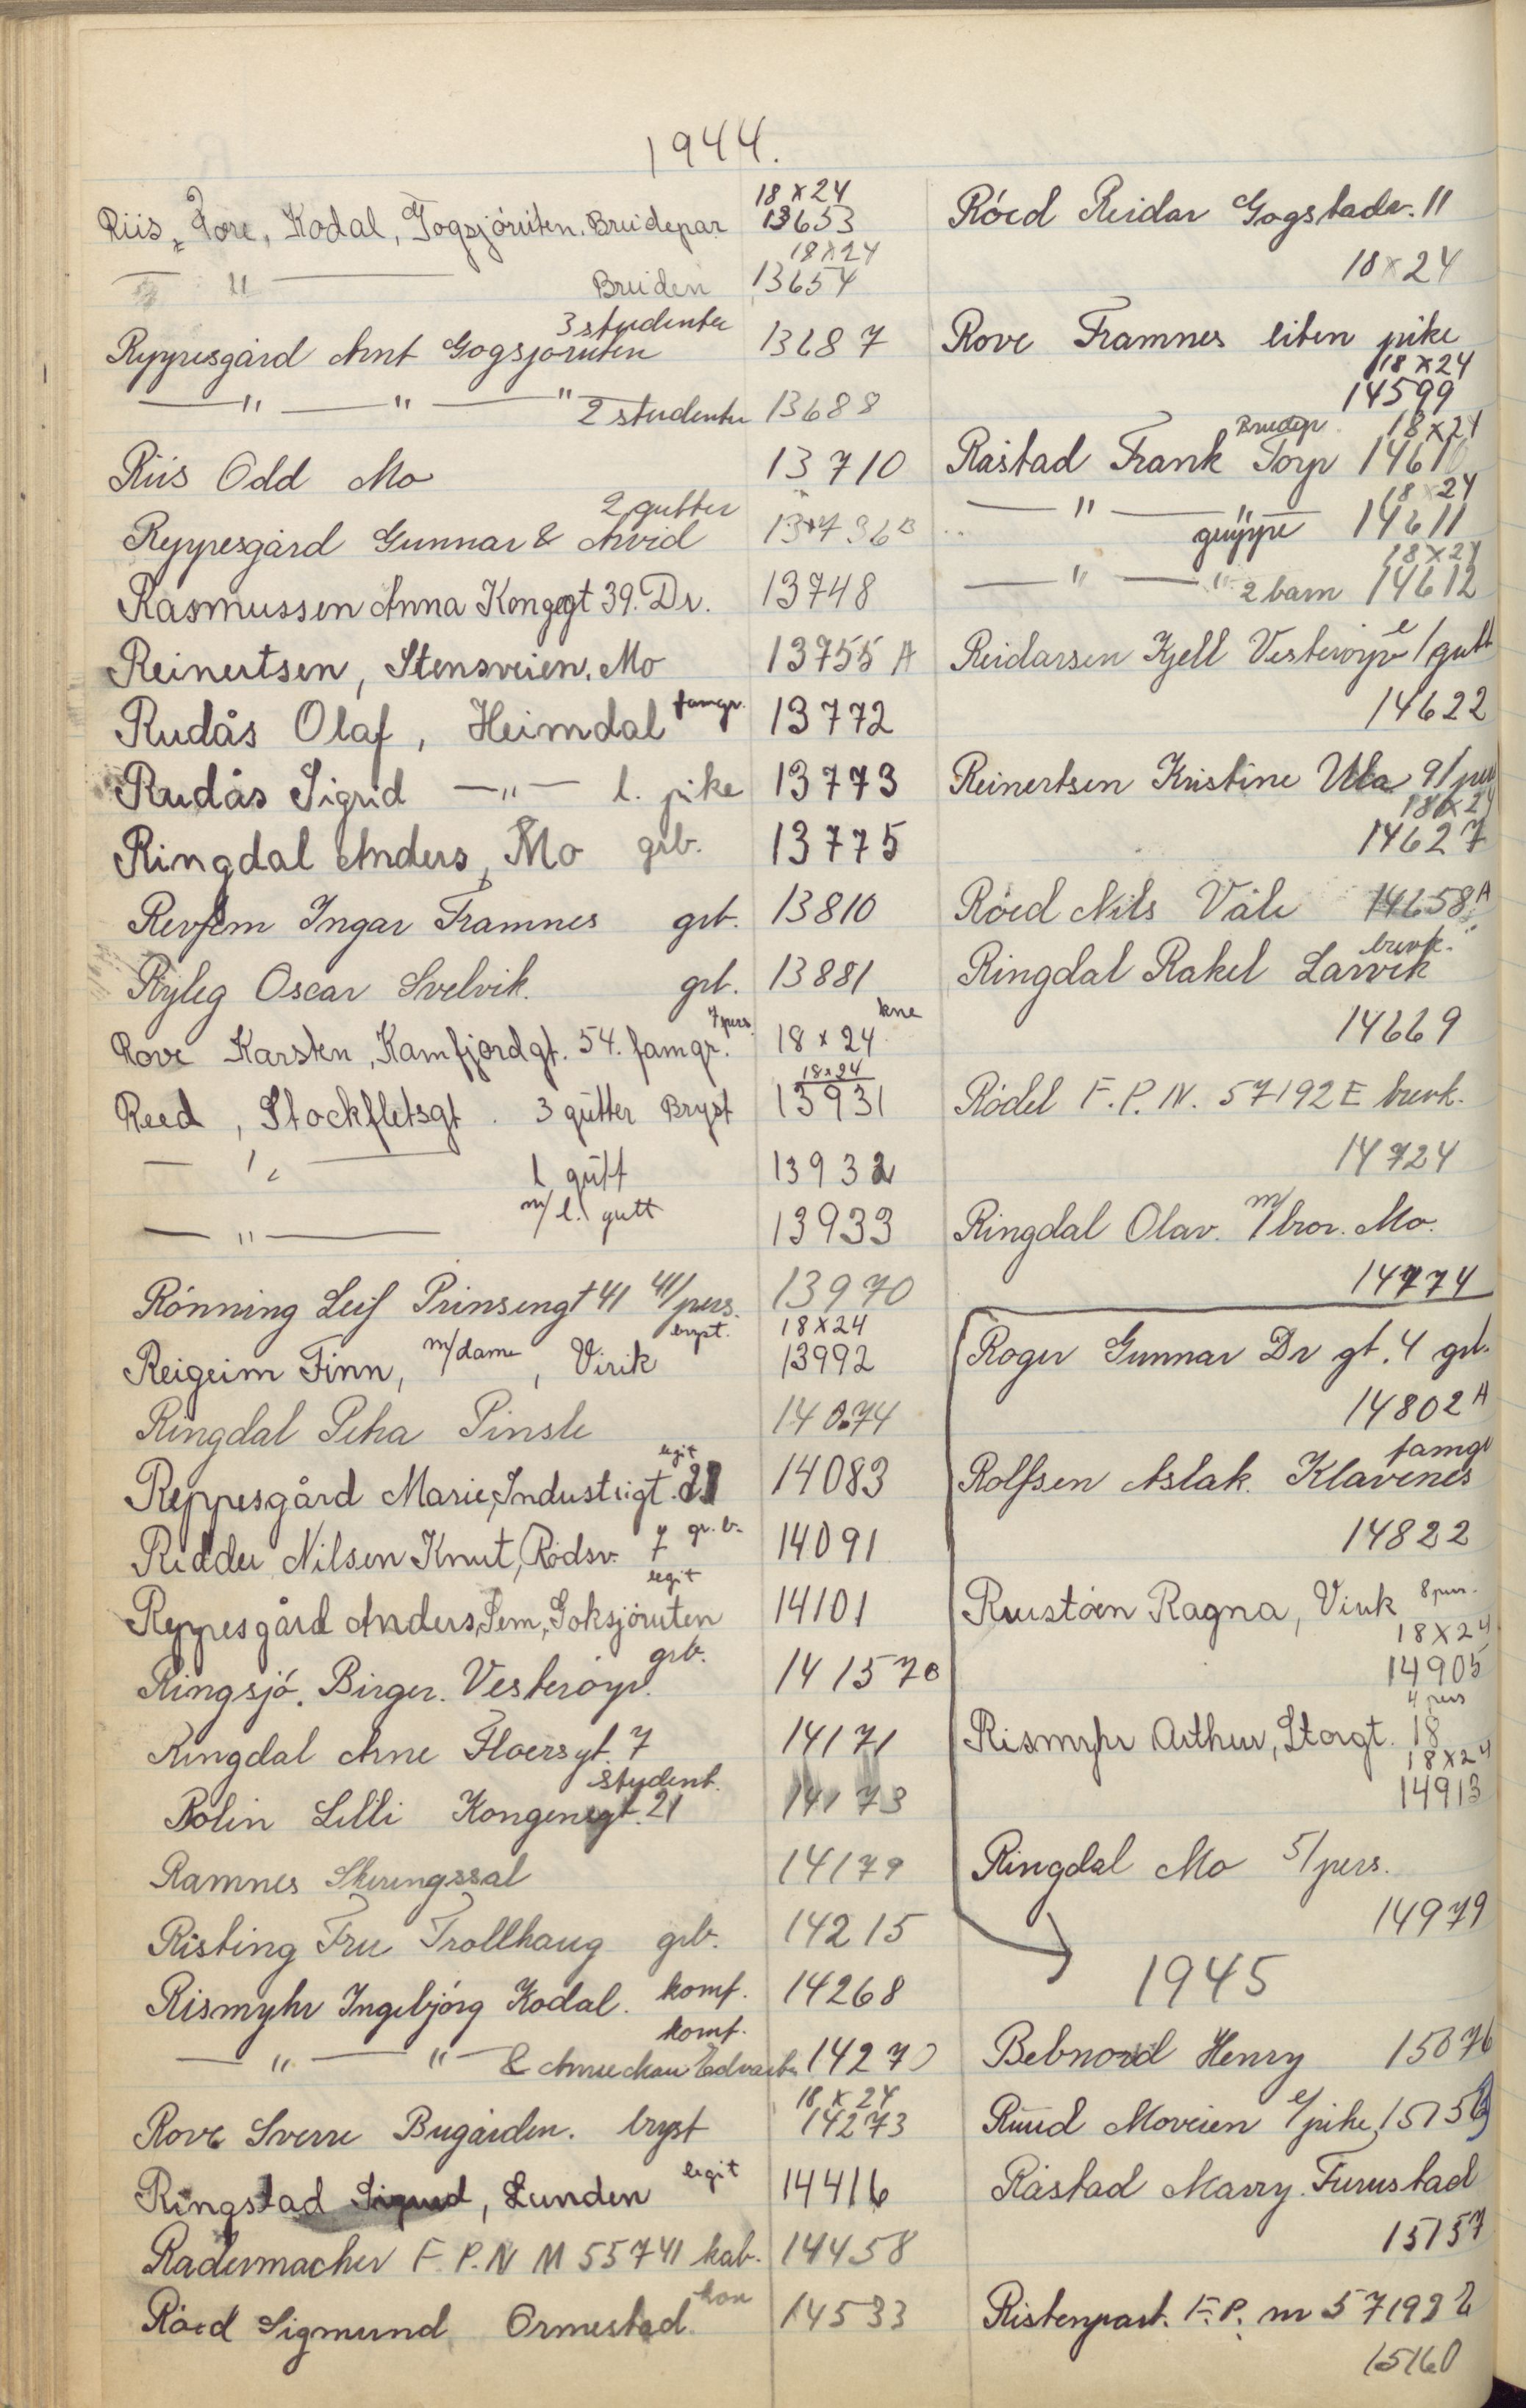 1944.
Riis, Tore, Kodal, Gogsjöruten. Brudepar 18x24 13653
— " — Bruden 18x24 13654
Ryppesgård Arnt Gogsjöruten 3 studenter 13687
— " — " — " 2 studenter 13688
Riis Odd Mo 13710
Reppesgård Gunnar & Arvid 2 gutter 13736 B
Rasmussen Anna Kongegt 39. Dr. 13748
Reinertsen, Stensveien. Mo 13755 A
Rudås Olaf, Heimdal famgr. 13772
Rudås Sigrid — " — l. pike 13773
Ringdal Anders, Mo grb. 13775
Revfem Ingar Framnes grb. 13810
Ryleg Oscar Svelvik. grb. 13881
Rove Karsten, Kamfjordgt. 54. famgr. 7 pers. 18x24 kne
Reed, Stockfletsgt. 3 gutter Bryst 18x24 13931
— " — 1 gutt 13932
— " — m/ l. gutt 13933
Rönning Leif Prinsengt 41 4/pers. 13970
Reigeim Finn, m/dame, Virik bryst. 18x24 13992
Ringdal Petra Pinsle 14074
Reppesgård Marie, Industrigt. 21 legit 14083
Ridder Nilsen Knut, Rødsv. 7 gr.b. 14091
Reppesgård Anders, Sem, Goksjöruten legit 14101
Ringsjö. Birger. Vesteröyv. grb. 14157 B
Ringdal Arne Floersgt. 7 14171
Rolin Lilli Kongensgt. 21 student. 14173
Ramnes Skeringssal 14179
Risting Fru Trollhaug grb. 14215
Rismyhr Ingebjörg Kodal. komf. 14268
— " — " — & komf. 14270
Rove Sverre Bugården. bryst 18x24 14273
Ringstad Sigurd, Lunden legit 14416
Radermacher F.P.N M 55741 kab. 14458
Röed Sigmund Ormestad kon 14533
Röed Reidar Gogstadv. 11
18x24
Rove Framnes liten pike
18x24
14599
Råstad Frank Torp Brudepr. 18x24 14610
— " — " gruppe 18x24 14611
— " — " 2 barn 18x24 14612
Reidarsen Kjell Vesteröyv l/gutt
14622
Reinertsen Kristine Ula 9/pers
18x24
14627
Röed Nils Våle 14658 A
Ringdal Rakel Larvik brevk.
14669
Rödel F.P.N. 57192 E brevk.
14724
Ringdal Olav. m/bror. Mo.
14774
Roger Gunnar Dr gt. 4 grb.
14802 A
Rolfsen Aslak. Klavenes famgr
14822
Ruustöen Ragna, Virik 8 pers.
18x24
14905
Rismyhr Arthur, Storgt. 18 4 pers
18x24
14913
Ringdal Mo 5/pers.
14979
1945
Bebnord Henry 15076
Ruud Moveien l/pike 15156
Råstad Marry. Furustad
15157
Ristenpart. F.P. nr 57192
15160